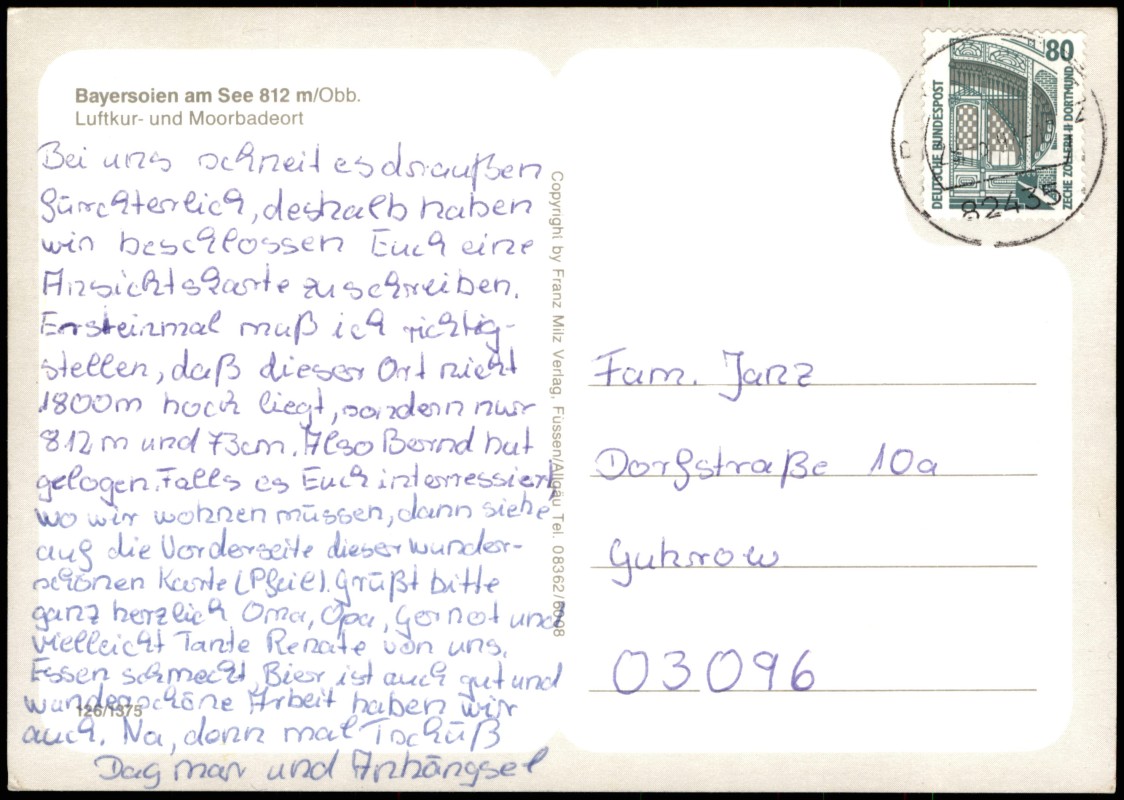 Bayersoien am See 812 m/Obb.
Luftkur- und Moorbadeort
Bei uns schneit es draußen
fürchterlich, deshalb haben
wir beschlossen Euch eine
Ansichtskarte zu schreiben.
Ersteinmal muß ich richtig-
stellen, daß dieser Ort nicht
1800m hoch liegt, sondern nur
812 m und 73cm. Also Bernd hat
gelogen. Falls es Euch interressiert,
wo wir wohnen müssen, dann siehe
auf die Vorderseite dieser wunder-
schönen Karte (Pfeil). Grüßt bitte
ganz herzlich Oma, Opa, Gernot und
vielleicht Tante Renate von uns.
Essen schmeckt, Bier ist auch gut und
wunderschöne Arbeit haben wir
auch. Na, dann mal Tschüß
Dagmar und Anhängsel
126/1375
Copyright by Franz Milz Verlag, Füssen/Allgäu Tel. 08362/6068
80
DEUTSCHE BUNDESPOST
ZECHE ZOLLERN II DORTMUND
82435
Fam. Janz
Dorfstraße 10a
Guhrow
03096